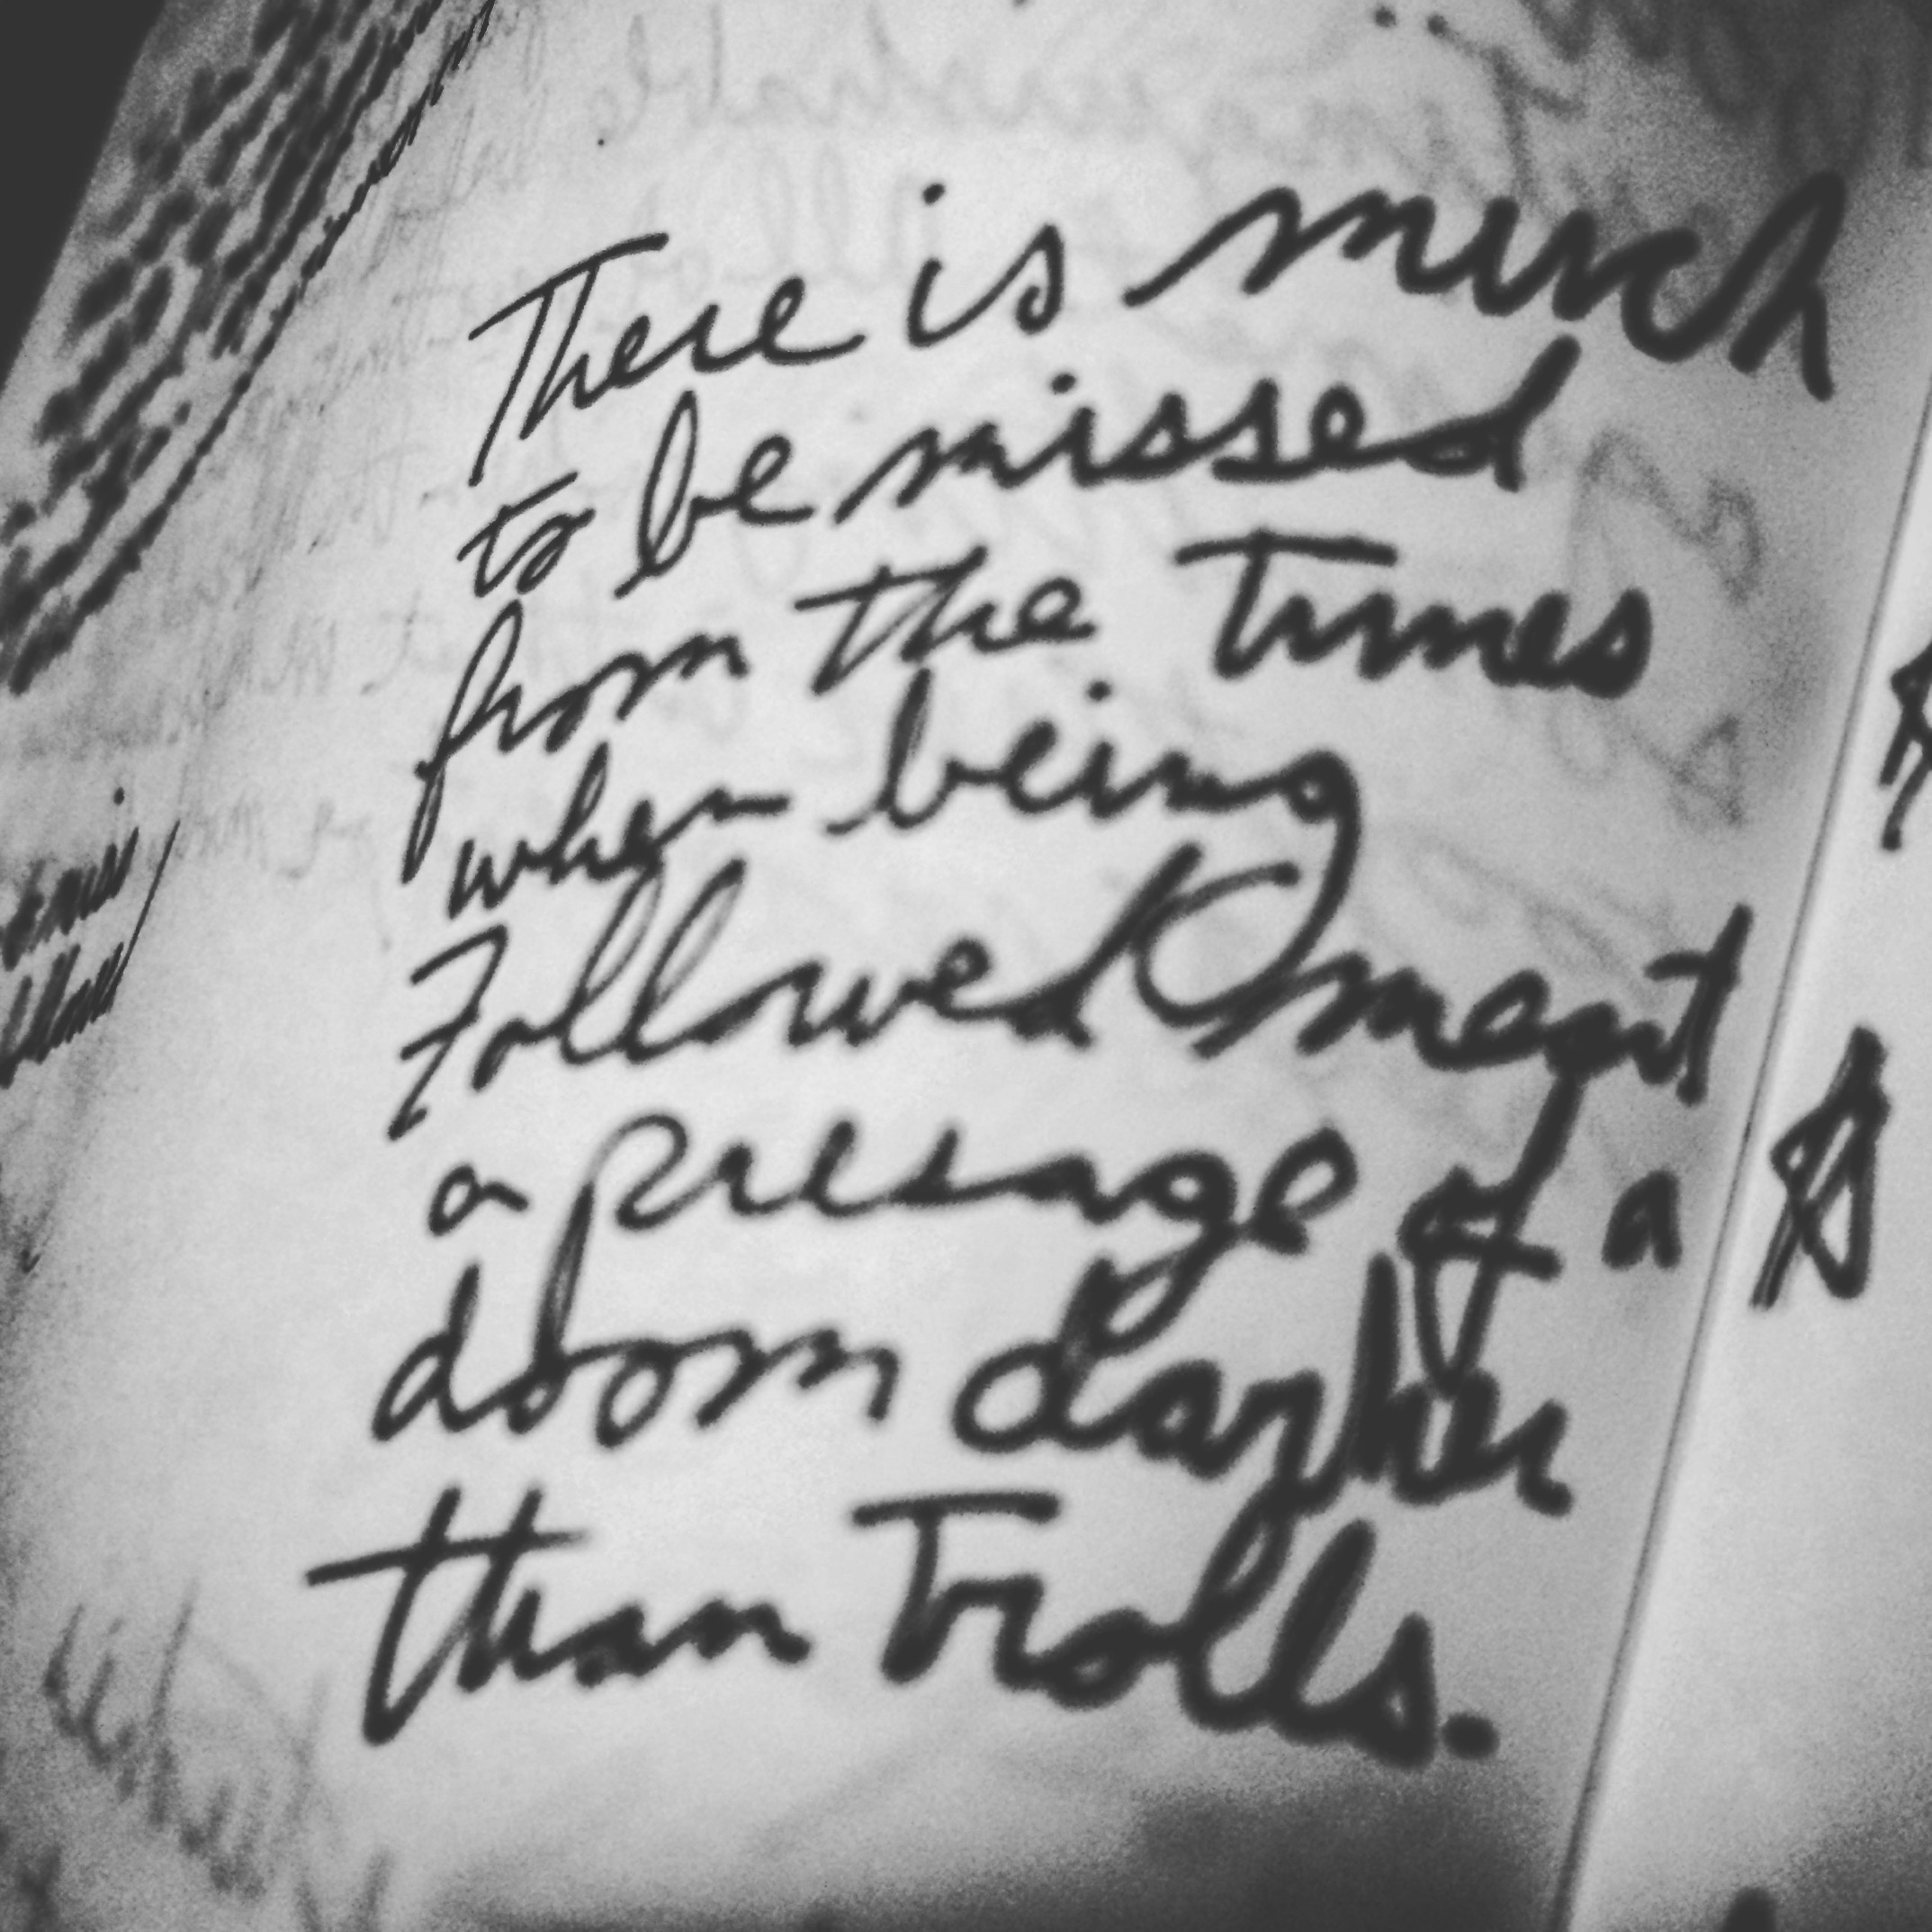 There is much
to be missed
from the Times
when being
Followed meant
a presage of a
doom darker
than Trolls.